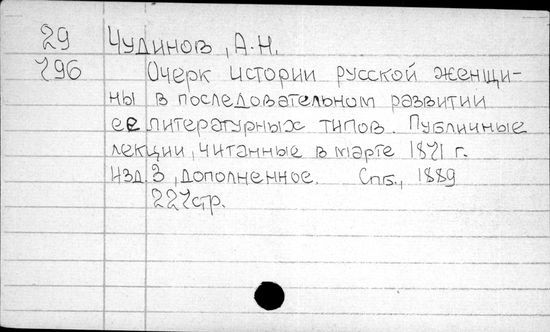 29 Чудинов, А.Н.
796 Очерк истории русской женщи-
ны в последовательном развитии
ее литературных типов. Публичные
лекции, читанные в марте 1871 г.
Изд. 3, дополненное. Спб., 1889
227стр.